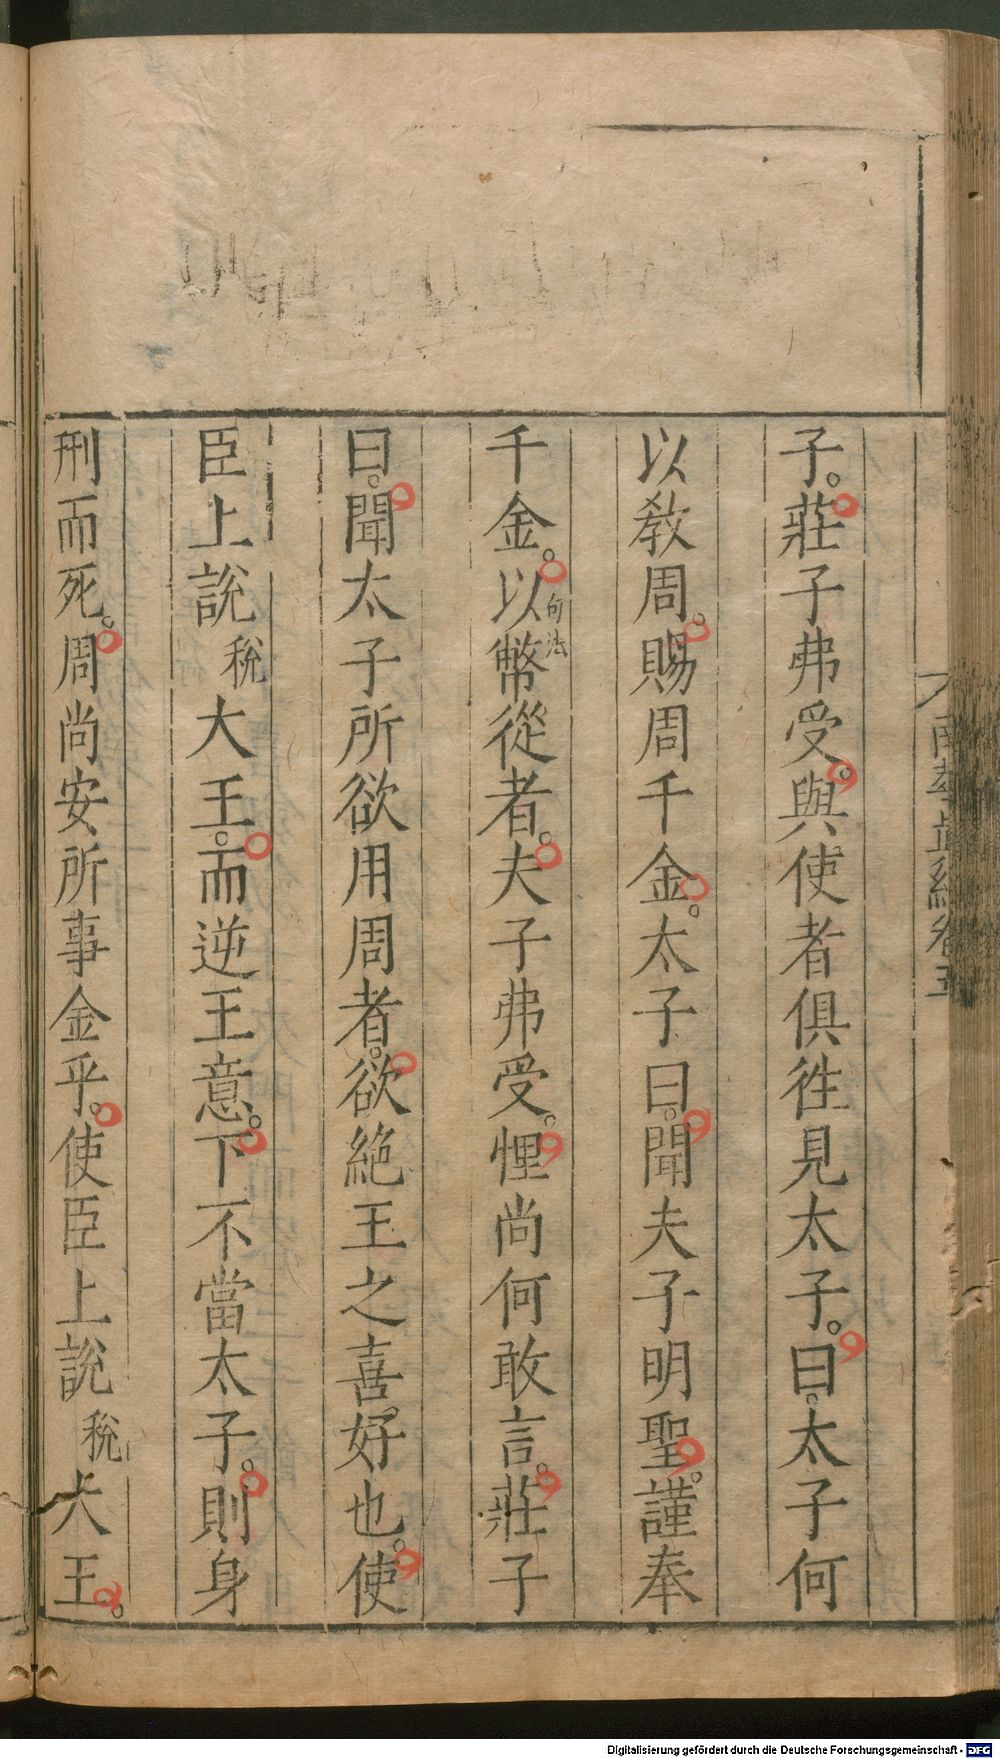 子。莊子弗受。與使者俱徃見太子。曰。太子何
以教周。賜周千金。太子曰。聞夫子明聖。謹奉
千金。以幣從者。夫子弗受。悝尚何敢言。莊子
句法
曰。聞太子所欲用周者。欲絶王之喜好也。使
臣上說稅大王。而逆王意。下不當太子。則身
刑而死。周尚安所事金乎。使臣上說稅大王。
南華眞經卷五
Digitalisierung gefördert durch die Deutsche Forschungsgemeinschaft - DFG